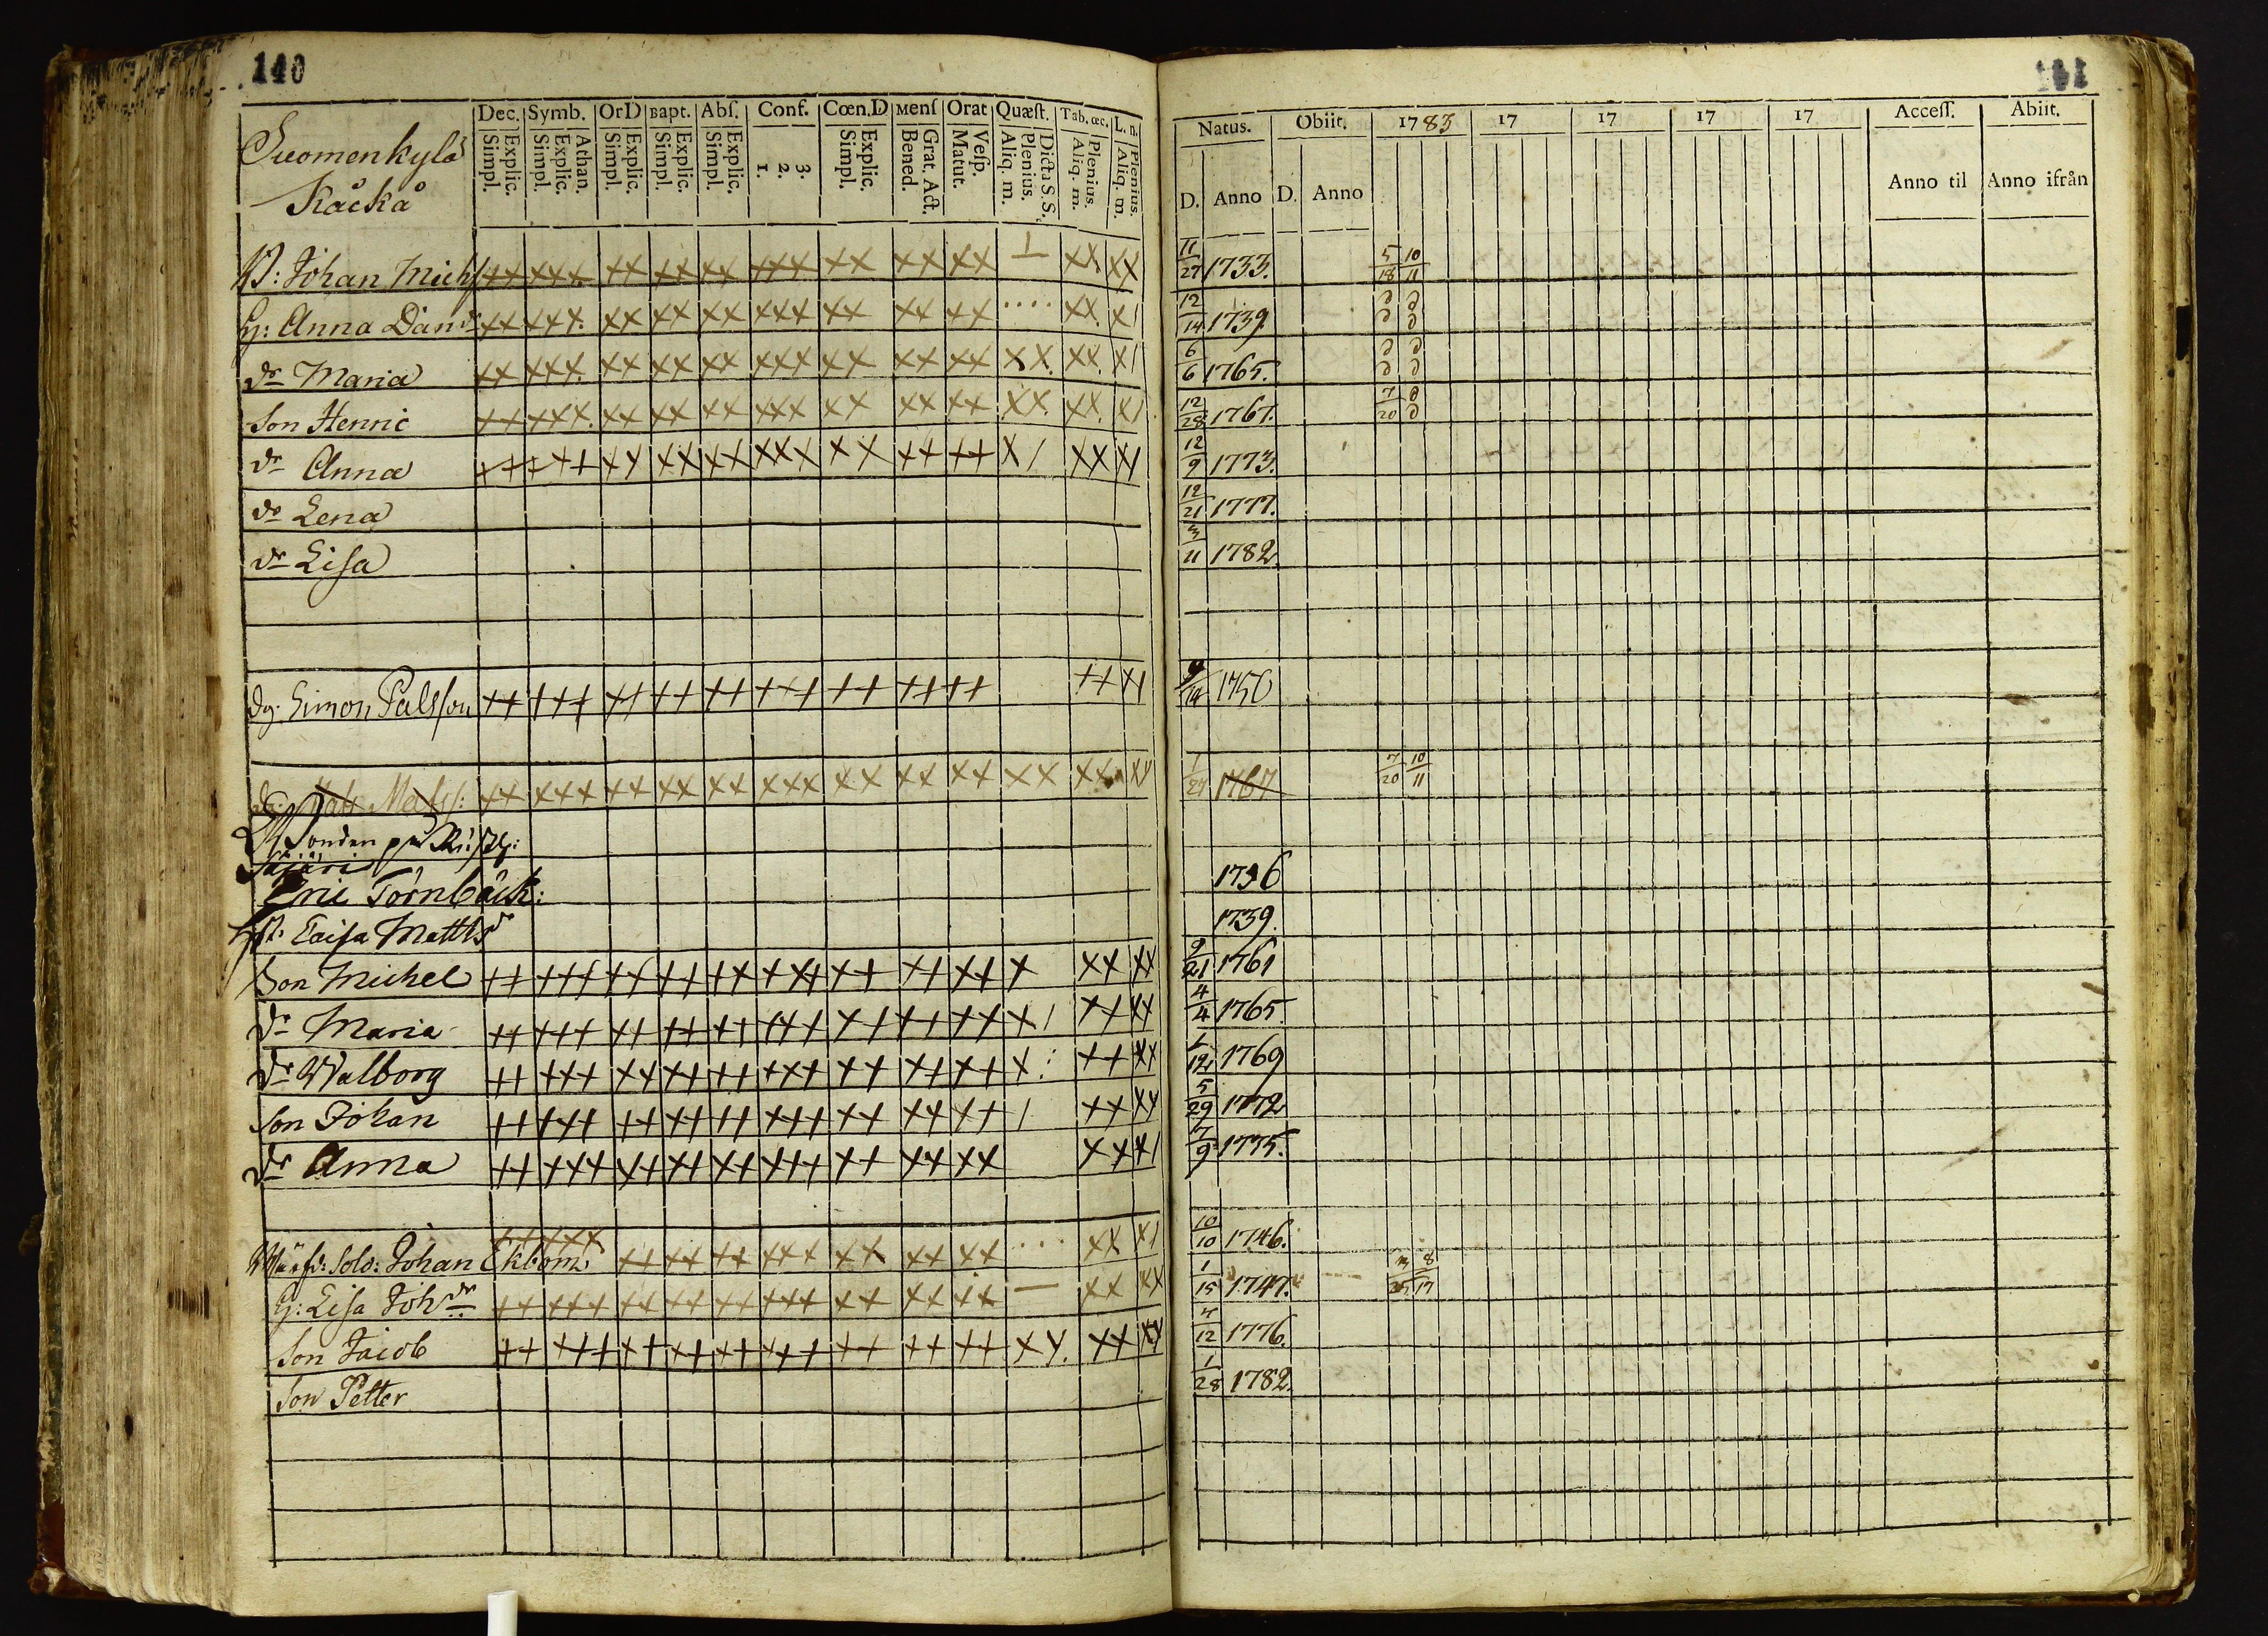 140
141
Suomenkylä
Kåckå
Dec. Symb. OrD Bapt. Abſ. Conf. Cœn.D Menſ Orat Quæſt. Tab. œc. L. n.
Explic. Simpl. Athan. Explic. Simpl. Explic. Simpl. Explic. Simpl. Explic. Simpl. 3. 2. 1. Explic. Simpl. Grat. Act. Bened. Veſp. Matut. Dicta S.S. Plenius. Aliq. m. Plenius. Aliq. m. Plenius. Aliq. m.
Natus. Obiit. 1783 17 17 17 17 Acceſſ. Abiit.
D. Anno D. Anno Anno til Anno ifrån
Johan Mich 11/27 1733. 5/18 10/11
H: Anna Dan dr 12/14 1739
dr Maria 6/6 1765.
Son Henric 12/28 1767. 7/20
dr Anna 12/9 1773.
dr Lena 12/21 1777.
dr Lisa 3/11 1782.
dg. Simon Palsson 1750
dg. Matt Mats: 1/24 1767 7/20 10/11
Eric Törnbäck: 1736
Caisa Matts dr 1739.
Son Michel 9/21 1761
dr Maria 4/4 1765.
dr Walborg 1/12 1769
Son Johan 5/29 1772
dr Anna 7/9 1775.
Sold: Johan Ekbom 10/10 1746.
H: Lisa Joh dr 1/15 1747. 8/17
Son Jacob 4/12 1776.
Son Petter 1/28 1782.